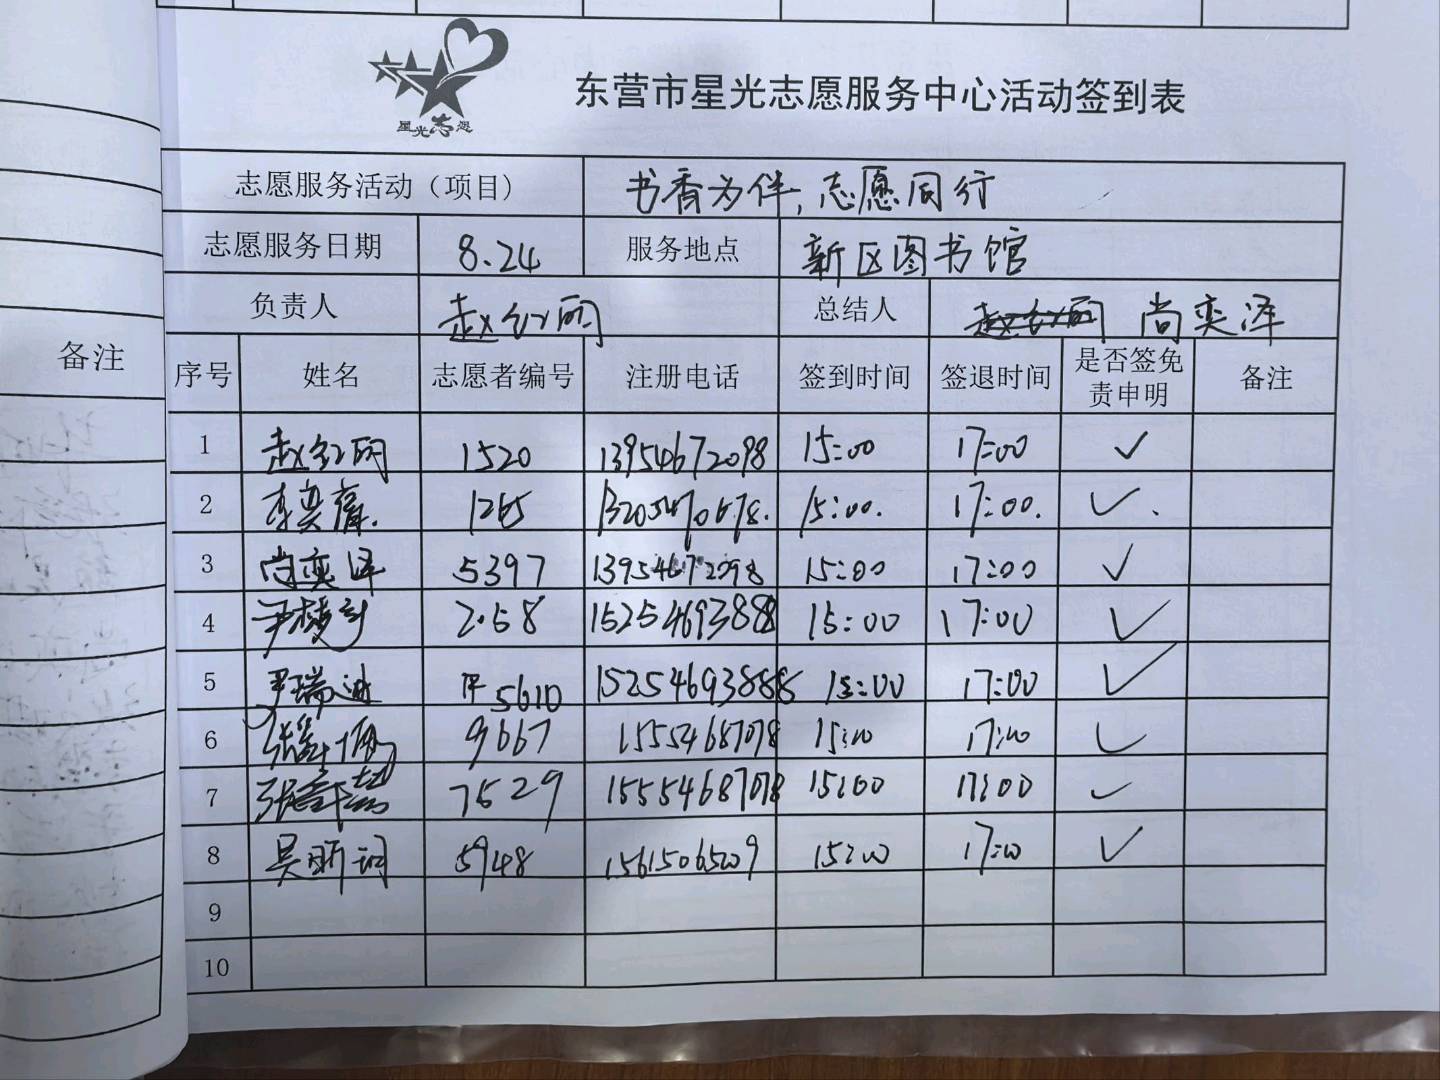 星光志愿
东营市星光志愿服务中心活动签到表
志愿服务活动（项目） 书香为伴，志愿同行
志愿服务日期 8.24 服务地点 新区图书馆
负责人 赵红丽 总结人 尚奕泽
备注
序号 姓名 志愿者编号 注册电话 签到时间 签退时间 是否签免责申明 备注
1 赵红丽 1520 13954672098 15:00 17:00 ✓
2 1265 15:00. 17:00. ✓.
3 尚奕泽 5397 13954672098 15:00 17:00 ✓
4 15254693888 15:00 17:00 ✓
5 尹瑞迪 5610 15254693888 15:00 17:00 ✓
6 9667 15554687078 15:00 17:00 ✓
7 7529 15554687078 15:00 17:00 ✓
8 吴昕词 5948 15615065209 15:00 17:00 ✓
9
10